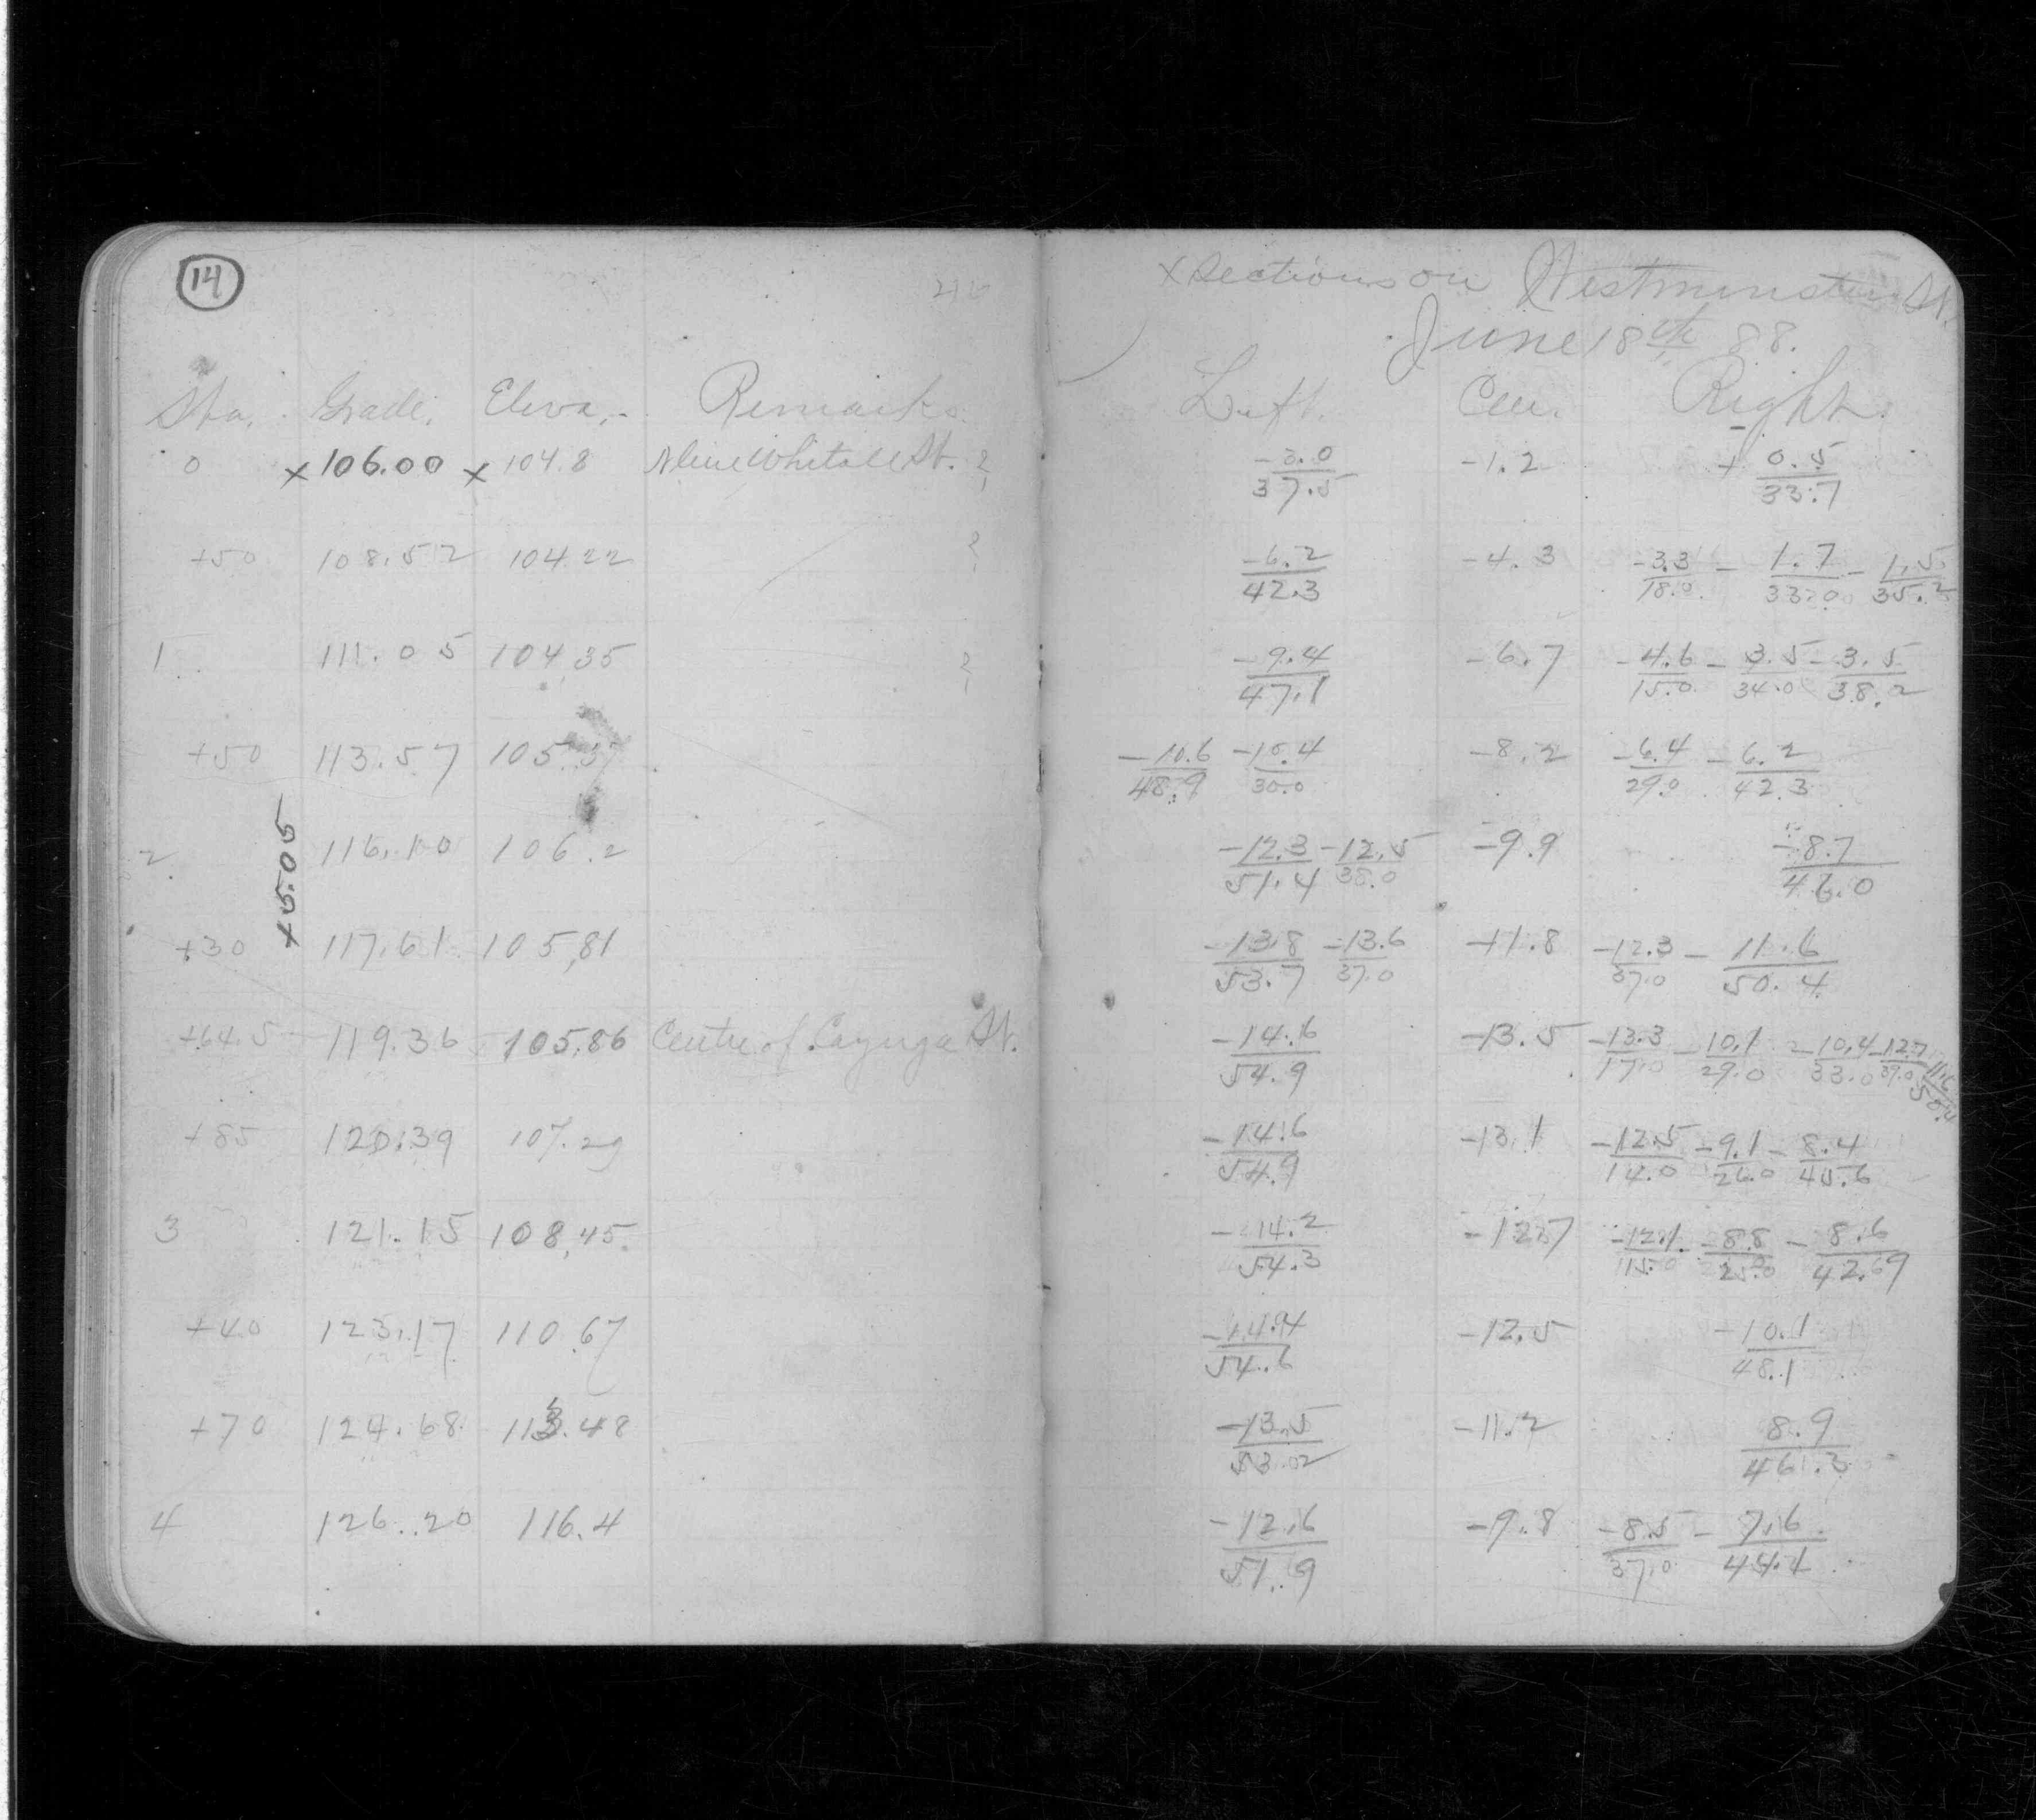 14
X Sections on Westminster St.
June 18th 88.
Sta. Grade. Eleva. Remarks Left. Cen. Right.
0 x 106.00 x 104.8 N line Whitall St. ? -3.0/37.5 -1.2 + 0.5/33.7
+50 108.52 104.22 ? -6.2/42.3 -4.3 -3.3/18.0 - 1.7/33.0 - 1.5/35.2
1 111.05 104.35 ? -9.4/47.1 -6.7 -4.6/15.0 - 3.5/34.0 - 3.5/38.2
+50 113.57 105.37 -10.6/48.9 -10.4/30.0 -8.2 -6.4/29.0 - 6.2/42.3
+5.05
2 116.10 106.2 -12.3/51.4 -12.5/38.0 -9.9 -8.7/46.0
+30 117.61 105.81 -13.8/53.7 -13.6/37.0 -11.8 -12.3/37.0 - 11.6/50.4
+64.5 119.36 105.86 Centre of Cayuga St. -14.6/54.9 -13.5 -13.3/17.0 - 10.1/29.0 - 10.4/33.0 -12.7/39.0 -11.6/50.4
+85 120.39 107.29 -14.6/54.9 -13.1 -12.5/14.0 - 9.1/26.0 - 8.4/45.6
3 121.15 108.45 -14.2/54.3 -12.7 -12.1/15.0 -8.8/25.0 - 8.6/42.9
+40 123.17 110.67 -14.4/54.6 -12.5 -10.1/48.1
+70 124.68 113.48 -13.5/53.2 -11.2 8.9/46.3
4 126.20 116.4 -12.6/51.9 -9.8 -8.5/37.0 - 7.6/44.4